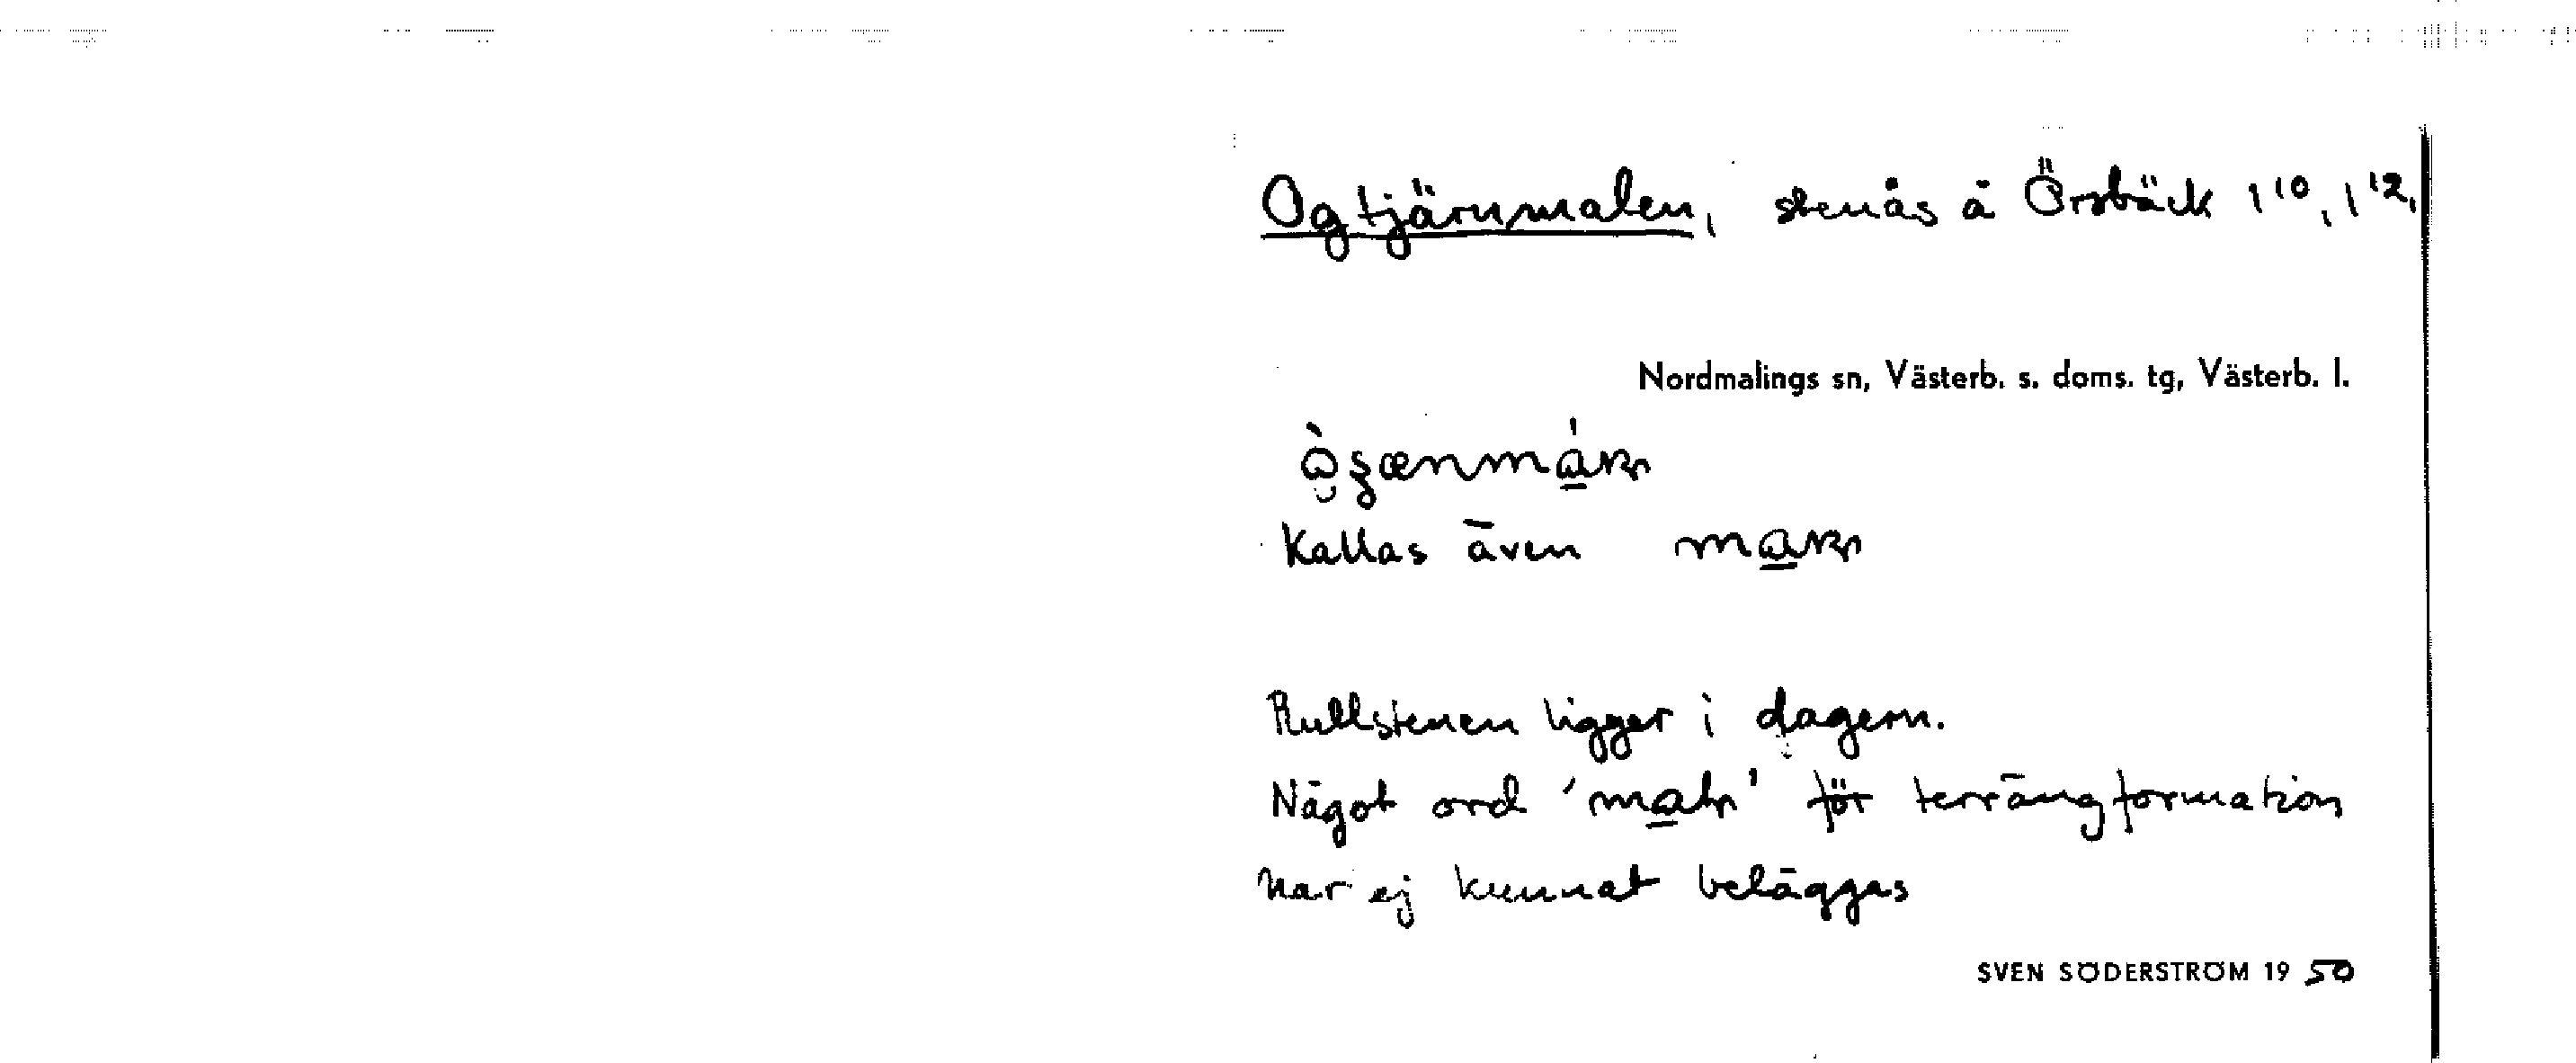 Ogtjärnmalen, stenås å Örsbäck 1¹⁰, 1¹²,
Nordmalings sn, Västerb. s. doms. tg, Västerb. l.
Kallas även
Rullstenen ligger i dagern.
Något ord 'maln' för terrängformation
har ej kunnat beläggas
SVEN SÖDERSTRÖM 19 50